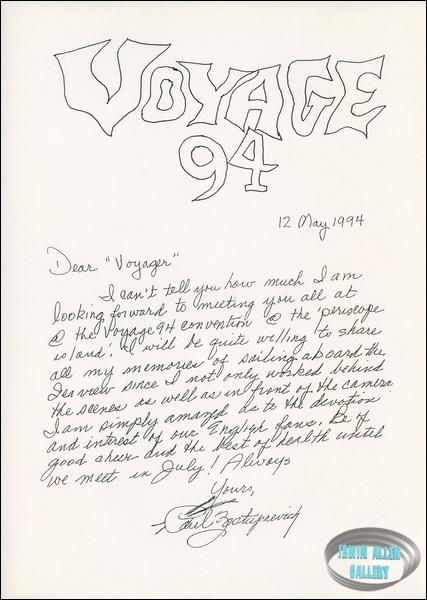 VOYAGE
94
12 May 1994
Dear "Voyager"
I can't tell you how much I am
looking forward to meeting you all at
@ the Voyage 94 convention @ the 'periscope
island'. I will be quite willing to share
all my memories of sailing aboard the
Seaview since I not only worked behind
the scenes as well as in front of the camera.
I am simply amazed as to the devotion
and interest of our English fans. Be of
good cheer and the best of health until
we meet in July! Always
Yours,
Paul Zastupnevich
IRWIN ALLEN
GALLERY